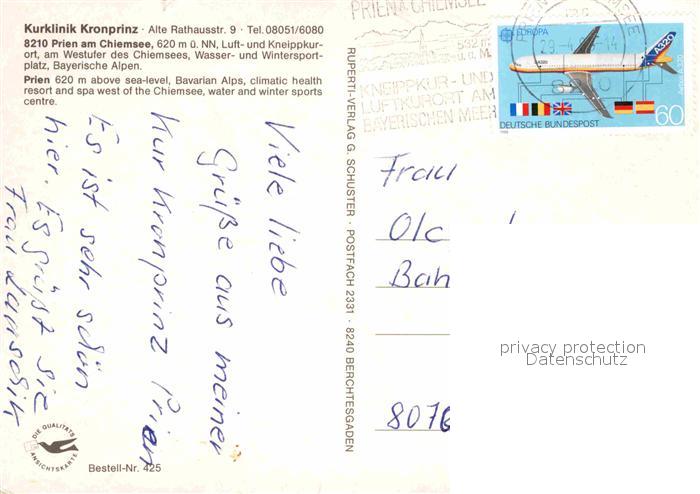 Kurklinik Kronprinz · Alte Rathausstr. 9 · Tel. 08051/6080
8210 Prien am Chiemsee, 620 m ü. NN, Luft- und Kneippkur-
ort, am Westufer des Chiemsees, Wasser- und Wintersport-
platz, Bayerische Alpen.
Prien 620 m above sea-level, Bavarian Alps, climatic health
resort and spa west of the Chiemsee, water and winter sports
centre.
Viele liebe
Grüße aus meiner
Kur Kronprinz Prien
Es ist sehr schön
hier. Es grüßt sie
Frau
DIE QUALITÄTS
ANSICHTSKARTE
Bestell-Nr. 425
RUPERTI-VERLAG G. SCHUSTER · POSTFACH 2331 · 8240 BERCHTESGADEN
PRIEN A CHIEMSEE
KNEIPPKUR- UND
LUFTKURORT AM
BAYERISCHEN MEER
EUROPA
A320
DEUTSCHE BUNDESPOST
60
1988
Frau
Olc
Bah
8076
privacy protection
Datenschutz